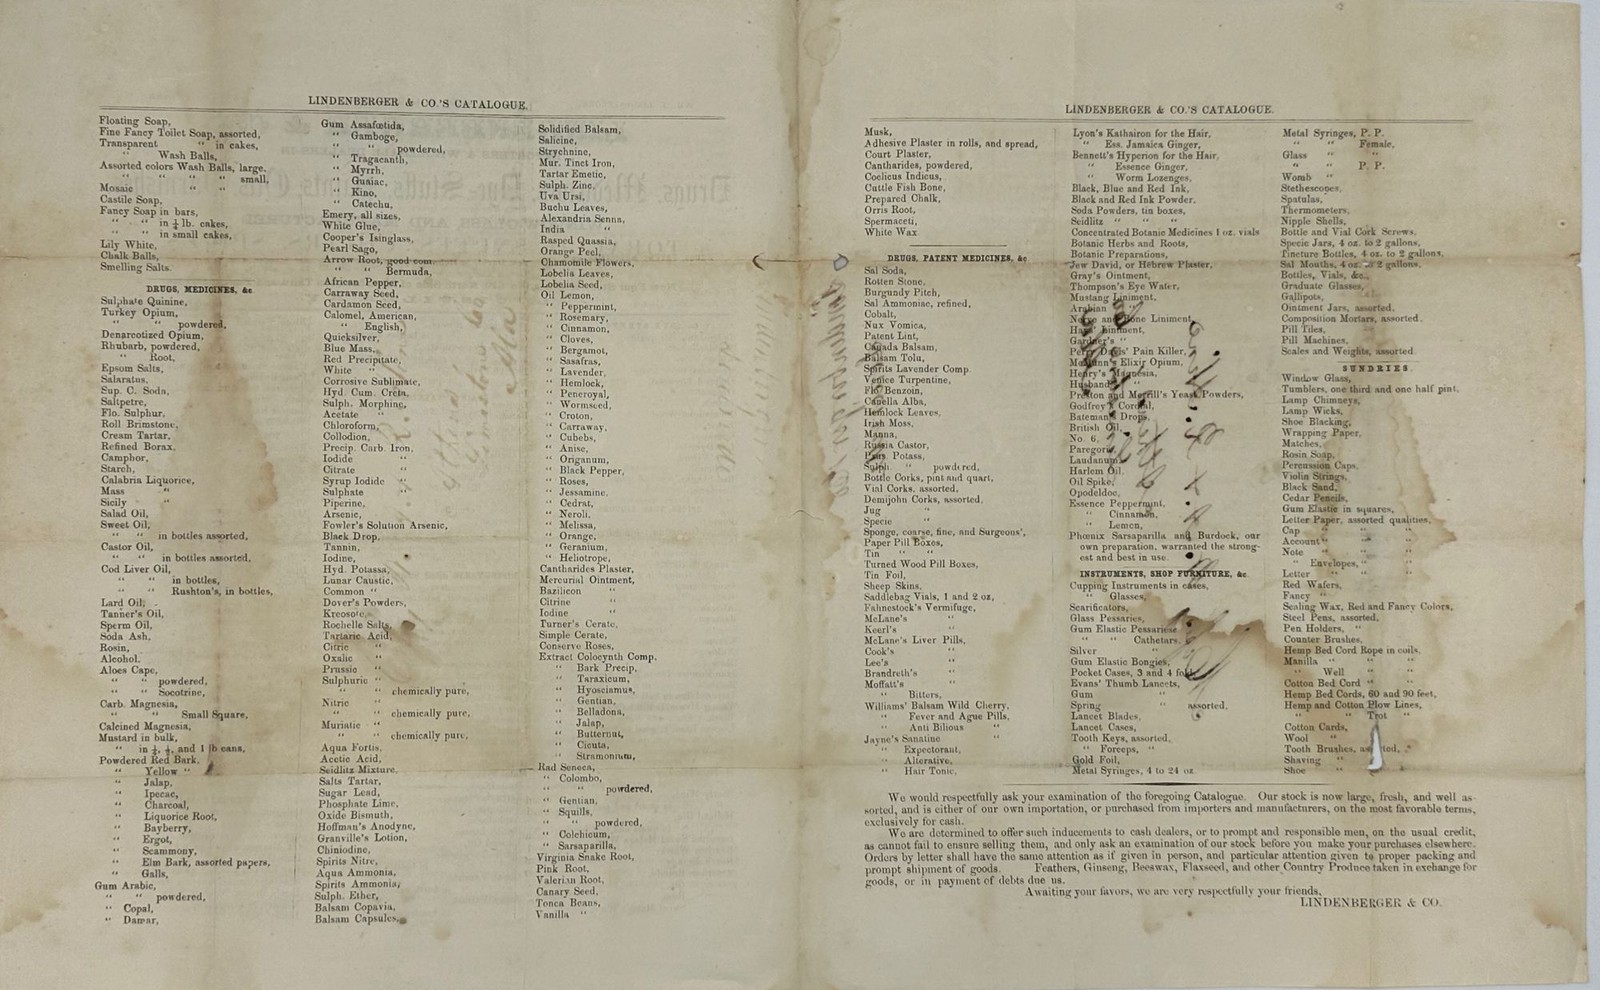 LINDENBERGER & CO.'S CATALOGUE.
Floating Soap,
Fine Fancy Toilet Soap, assorted,
Transparent " in cakes,
" Wash Balls,
Assorted colors Wash Balls, large.
" " " " small,
Mosaic " "
Castile Soap,
Fancy Soap in bars,
" " in ¼ lb. cakes,
" " in small cakes,
Lily White,
Chalk Balls,
Smelling Salts.
DRUGS, MEDICINES, &c
Sulphate Quinine,
Turkey Opium,
" " powdered,
Denarcotized Opium,
Rhubarb, powdered,
" Root,
Epsom Salts,
Salaratus,
Sup. C. Soda,
Saltpetre,
Flo. Sulphur,
Roll Brimstone,
Cream Tartar,
Refined Borax,
Camphor,
Starch,
Calabria Liquorice,
Mass "
Sicily "
Salad Oil,
Sweet Oil,
" " in bottles assorted,
Castor Oil,
" " in bottles assorted,
Cod Liver Oil,
" " in bottles,
" " Rushton's, in bottles,
Lard Oil,
Tanner's Oil,
Sperm Oil,
Soda Ash,
Rosin,
Alcohol.
Aloes Cape,
" " powdered,
" " Socotrine,
Carb. Magnesia,
" " Small Square,
Calcined Magnesia,
Mustard in bulk,
" in ¼, ½, and 1 lb cans,
Powdered Red Bark,
" Yellow "
" Jalap,
" Ipecac,
" Charcoal,
" Liquorice Root,
" Bayberry,
" Ergot,
" Scammony,
" Elm Bark, assorted papers,
" Galls,
Gum Arabic,
" " powdered,
" Copal,
" Damar,
Gum Assafœtida,
" Gamboge,
" " powdered,
" Tragacanth,
" Myrrh,
" Guaiac,
" Kino,
" Catechu,
Emery, all sizes,
White Glue,
Cooper's Isinglass,
Pearl Sago,
Arrow Root, good com.
" " Bermuda,
African Pepper,
Carraway Seed,
Cardamon Seed,
Calomel, American,
" English,
Quicksilver,
Blue Mass,
Red Precipitate,
White "
Corrosive Sublimate,
Hyd. Cum. Creta,
Sulph. Morphine,
Acetate "
Chloroform,
Collodion,
Precip. Carb. Iron,
Iodide "
Citrate "
Syrup Iodide "
Sulphate "
Piperine,
Arsenic,
Fowler's Solution Arsenic,
Black Drop,
Tannin,
Iodine,
Hyd. Potassa,
Lunar Caustic,
Common "
Dover's Powders,
Kreosote,
Rochelle Salts,
Tartaric Acid,
Citric "
Oxalic "
Prussic "
Sulphuric "
" " chemically pure,
Nitric "
" " chemically pure,
Muriatic "
" " chemically pure,
Aqua Fortis,
Acetic Acid,
Seidlitz Mixture,
Salts Tartar,
Sugar Lead,
Phosphate Lime,
Oxide Bismuth,
Hoffman's Anodyne,
Granville's Lotion,
Chiniodine,
Spirits Nitre,
Aqua Ammonia,
Spirits Ammonia,
Sulph. Ether,
Balsam Copavia,
Balsam Capsules,
Solidified Balsam,
Salicine,
Strychnine,
Mur. Tinct Iron,
Tartar Emetic,
Sulph. Zinc,
Uva Ursi,
Buchu Leaves,
Alexandria Senna,
India "
Rasped Quassia,
Orange Peel,
Chamomile Flowers,
Lobelia Leaves,
Lobelia Seed,
Oil Lemon,
" Peppermint,
" Rosemary,
" Cinnamon,
" Cloves,
" Bergamot,
" Sasafras,
" Lavender,
" Hemlock,
" Peneroyal,
" Wormseed,
" Croton,
" Carraway,
" Cubebs,
" Anise,
" Origanum,
" Black Pepper,
" Roses,
" Jessamine,
" Cedrat,
" Neroli,
" Melissa,
" Orange,
" Geranium,
" Heliotrope,
Cantharides Plaster,
Mercurial Ointment,
Bazilicon "
Citrine "
Iodine "
Turner's Cerate,
Simple Cerate,
Conserve Roses,
Extract Colocynth Comp.
" Bark Precip.
" Taraxicum,
" Hyosciamus,
" Gentian,
" Belladona,
" Jalap,
" Butternut,
" Cicuta,
" Stramonium,
Rad Seneca,
" Colombo,
" " powdered,
" Gentian,
" Squills,
" " powdered,
" Colchicum,
" Sarsaparilla,
Virginia Snake Root,
Pink Root,
Valerian Root,
Canary Seed,
Tonca Beans,
Vanilla "
LINDENBERGER & CO.'S CATALOGUE.
Musk,
Adhesive Plaster in rolls, and spread,
Court Plaster,
Cantharides, powdered,
Coclicus Indicus,
Cuttle Fish Bone,
Prepared Chalk,
Orris Root,
Spermaceti,
White Wax
DRUGS, PATENT MEDICINES, &c
Sal Soda,
Rotten Stone,
Burgundy Pitch,
Sal Ammoniac, refined,
Cobalt,
Nux Vomica,
Patent Lint,
Canada Balsam,
Balsam Tolu,
Spirits Lavender Comp.
Venice Turpentine,
Flo Benzoin,
Canella Alba,
Hemlock Leaves,
Irish Moss,
Manna,
Russia Castor,
Potass,
Sulph. " powdered,
Bottle Corks, pint and quart,
Vial Corks, assorted,
Demijohn Corks, assorted,
Jug "
Specie "
Sponge, coarse, fine, and Surgeons',
Paper Pill Boxes,
Tin " "
Turned Wood Pill Boxes,
Tin Foil,
Sheep Skins,
Saddlebag Vials, 1 and 2 oz,
Fahnestock's Vermifuge,
McLane's "
Keerl's "
McLane's Liver Pills,
Cook's "
Lee's "
Brandreth's "
Moffatt's "
" Bitters,
Williams' Balsam Wild Cherry,
" Fever and Ague Pills,
" Anti Bilious "
Jayne's Sanative "
" Expectorant,
" Alterative,
" Hair Tonic,
Lyon's Kathairon for the Hair,
" Ess. Jamaica Ginger,
Bennett's Hyperion for the Hair,
" Essence Ginger,
" Worm Lozenges,
Black, Blue and Red Ink,
Black and Red Ink Powder,
Soda Powders, tin boxes,
Seidlitz " " "
Concentrated Botanic Medicines 1 oz. vials
Botanic Herbs and Roots,
Botanic Preparations,
Jew David, or Hebrew Plaster,
Gray's Ointment,
Thompson's Eye Water,
Mustang Liniment,
Arabian "
Nerve and Bone Liniment,
Liniment,
Gardner's "
Perry Davis' Pain Killer,
McMunn's Elixir Opium,
Henry's Magnesia,
Husband's "
Preston and Merrill's Yeast Powders,
Godfrey's Cordial,
Bateman's Drops,
British Oil,
No. 6,
Paregoric,
Laudanum,
Harlem Oil.
Oil Spike,
Opodeldoc,
Essence Peppermint,
" Cinnamon,
" Lemon,
Phœnix Sarsaparilla and Burdock, our
own preparation, warranted the strong-
est and best in use.
INSTRUMENTS, SHOP FURNITURE, &c
Cupping Instruments in cases,
" Glasses,
Scarificators,
Glass Pessaries,
Gum Elastic Pessaries
" " Cathetars,
Silver "
Gum Elastic Bongies,
Pocket Cases, 3 and 4 fold,
Evans' Thumb Lancets,
Gum "
Spring " assorted,
Lancet Blades,
Lancet Cases,
Tooth Keys, assorted,
" Forceps, "
Gold Foil,
Metal Syringes, 4 to 24 oz
Metal Syringes, P. P.
" " Female,
Glass " "
" " P. P.
Womb "
Stethescopes,
Spatulas,
Thermometers,
Nipple Shells,
Bottle and Vial Cork Screws,
Specie Jars, 4 oz. to 2 gallons,
Tincture Bottles, 4 oz. to 2 gallons,
Sal Mouths, 4 oz. to 2 gallons,
Bottles, Vials, &c.,
Graduate Glasses,
Gallipots,
Ointment Jars, assorted,
Composition Mortars, assorted,
Pill Tiles,
Pill Machines,
Scales and Weights, assorted
SUNDRIES.
Window Glass,
Tumblers, one third and one half pint.
Lamp Chimneys,
Lamp Wicks,
Shoe Blacking,
Wrapping Paper,
Matches,
Rosin Soap,
Percussion Caps,
Violin Strings,
Black Sand,
Cedar Pencils,
Gum Elastic in squares,
Letter Paper, assorted qualities,
Cap " " "
Account " " "
Note " " "
" Envelopes, " "
Letter " " "
Red Wafers,
Fancy "
Sealing Wax, Red and Fancy Colors,
Steel Pens, assorted,
Pen Holders, "
Counter Brushes,
Hemp Bed Cord Rope in coils,
Manilla " " "
" Well " "
Cotton Bed Cord " "
Hemp Bed Cords, 60 and 90 feet,
Hemp and Cotton Plow Lines,
" " Trot "
Cotton Cards,
Wool "
Tooth Brushes, assorted,
Shaving " "
Shoe " "
We would respectfully ask your examination of the foregoing Catalogue. Our stock is now large, fresh, and well as
sorted, and is either of our own importation, or purchased from importers and manufacturers, on the most favorable terms,
exclusively for cash.
We are determined to offer such inducements to cash dealers, or to prompt and responsible men, on the usual credit,
as cannot fail to ensure selling them, and only ask an examination of our stock before you make your purchases elsewhere.
Orders by letter shall have the same attention as if given in person, and particular attention given to proper packing and
prompt shipment of goods. Feathers, Ginseng, Beeswax, Flaxseed, and other Country Produce taken in exchange for
goods, or in payment of debts due us.
Awaiting your favors, we are very respectfully your friends,
LINDENBERGER & CO.